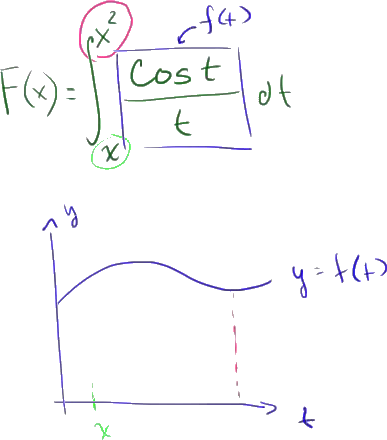 f(t)
F(x) = ∫ₓ^{x²} cos t / t dt
y
y = f(t)
x
t